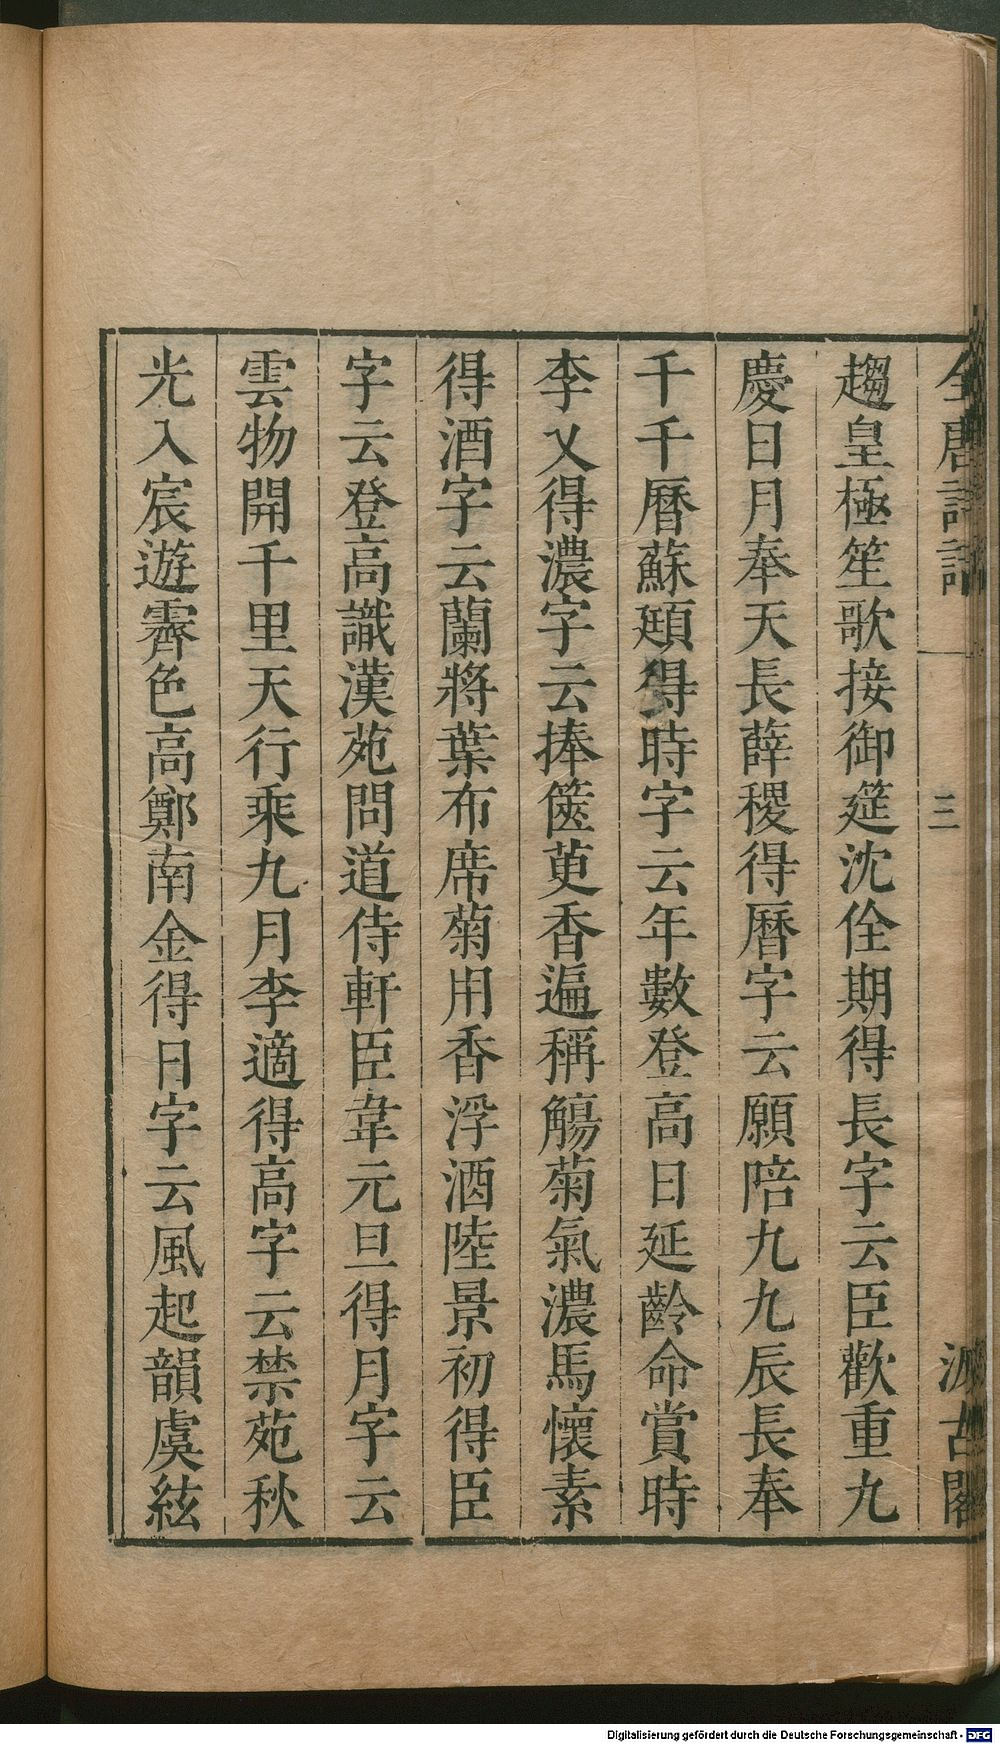 全唐詩話
三
汲古閣
趨皇極笙歌接御筵沈佺期得長字云臣歡重九
慶日月奉天長薛稷得曆字云願陪九九辰長奉
千千曆蘇頲得時字云年數登高日延齡命賞時
李乂得濃字云捧篋萸香遍稱觴菊氣濃馬懷素
得酒字云蘭將葉布席菊用香浮酒陸景初得臣
字云登高識漢苑問道侍軒臣韋元旦得月字云
雲物開千里天行乘九月李適得高字云禁苑秋
光入宸遊霽色高鄭南金得日字云風起韻虞絃
Digitalisierung gefördert durch die Deutsche Forschungsgemeinschaft - DFG